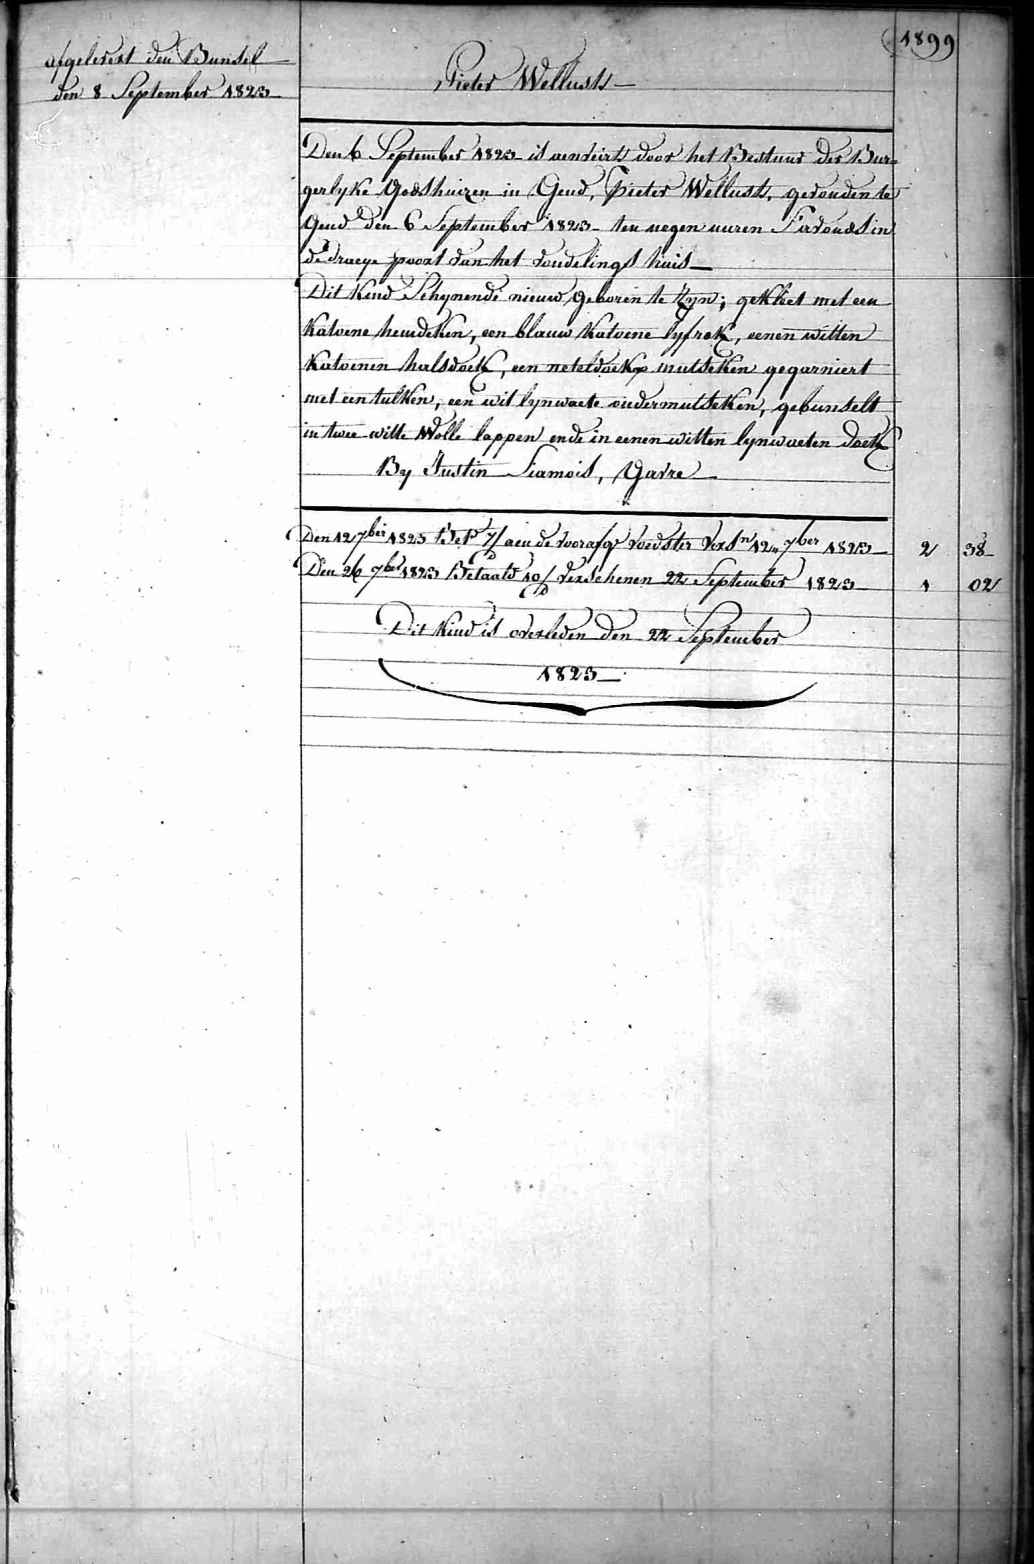 1899
afgelevert den Bunsel
den 8 September 1823
Pieter Wellusts
Den 6 September 1823 is aenveirt door het Bestuur der Bur-
gerlyke Godshuizen in Gend, Pieter Wellusts, gevonden te
Gend den 6 September 1823 ten negen uuren S'avonds in
de draeye poort van het vondelings huis
Dit Kind Schynende nieuw geboren te Zyn; gekleet met een
Katoene hemdeken, een blauw Katoene lyfrok, eenen witten
Katoenen halsdoek, een neteldoekx mutseken gegarniert
met een tulken, een wit lynwaete ondermutseken, gebunselt
in twee witte Wolle lappen ende in eenen witten lynwaeten doek
By Justin Siamois, Gavre
Den 12 7ber 1823 Bet. 7/ aen de voorafge voedster Versn 12 7ber 1823 2 38
Den 26 7ber 1823 Betaald 10/ Verschenen 22 September 1823 1 02
Dit Kind is overleden den 22 September
1823